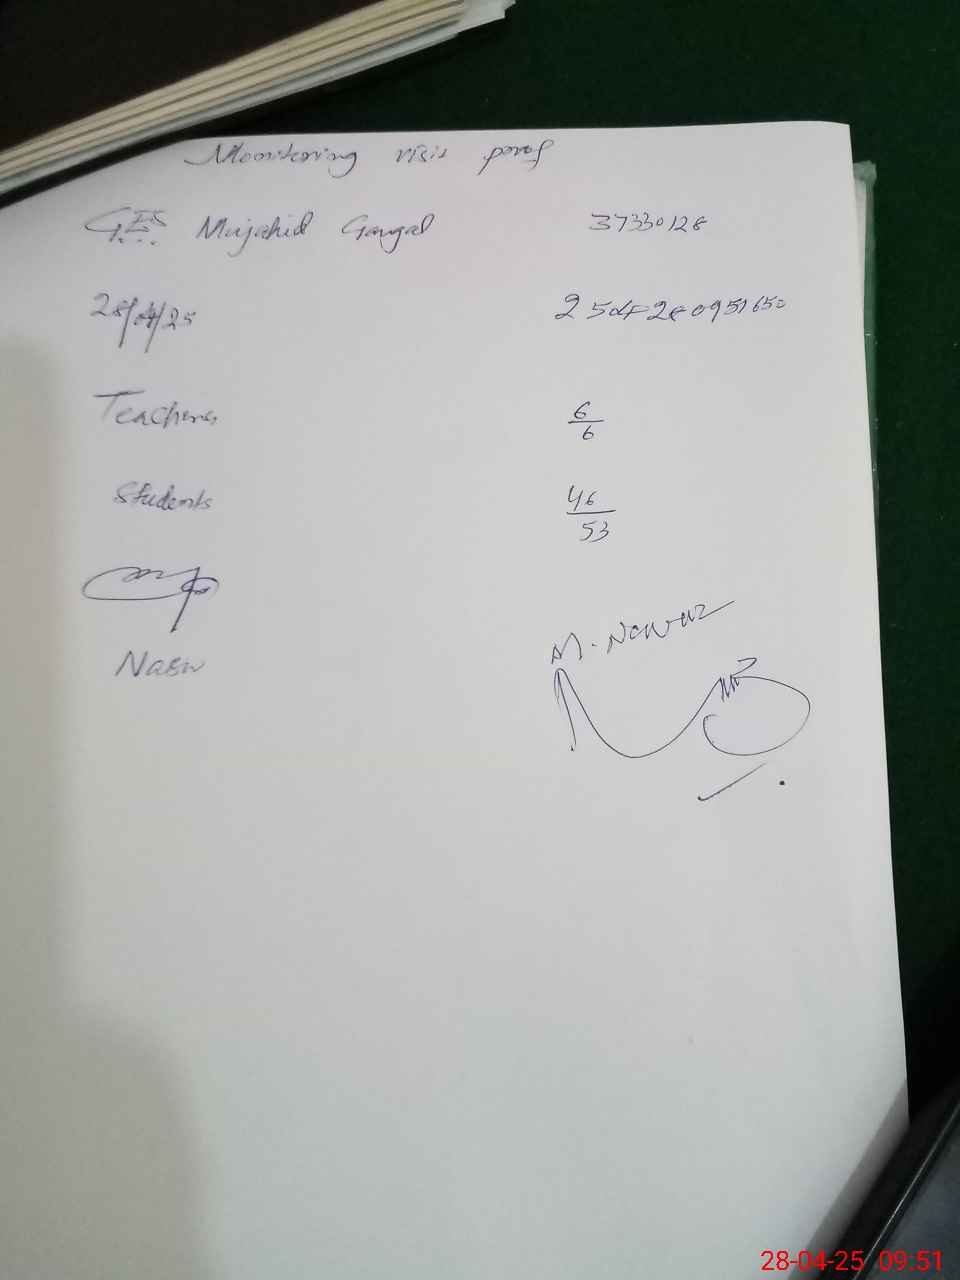 Monitoring visit proof
GES Mujahid Gangal 37330128
28/04/25 2504280951650
Teachers 6/6
Students 46/53
M. Nawaz
28-04-25 09:51